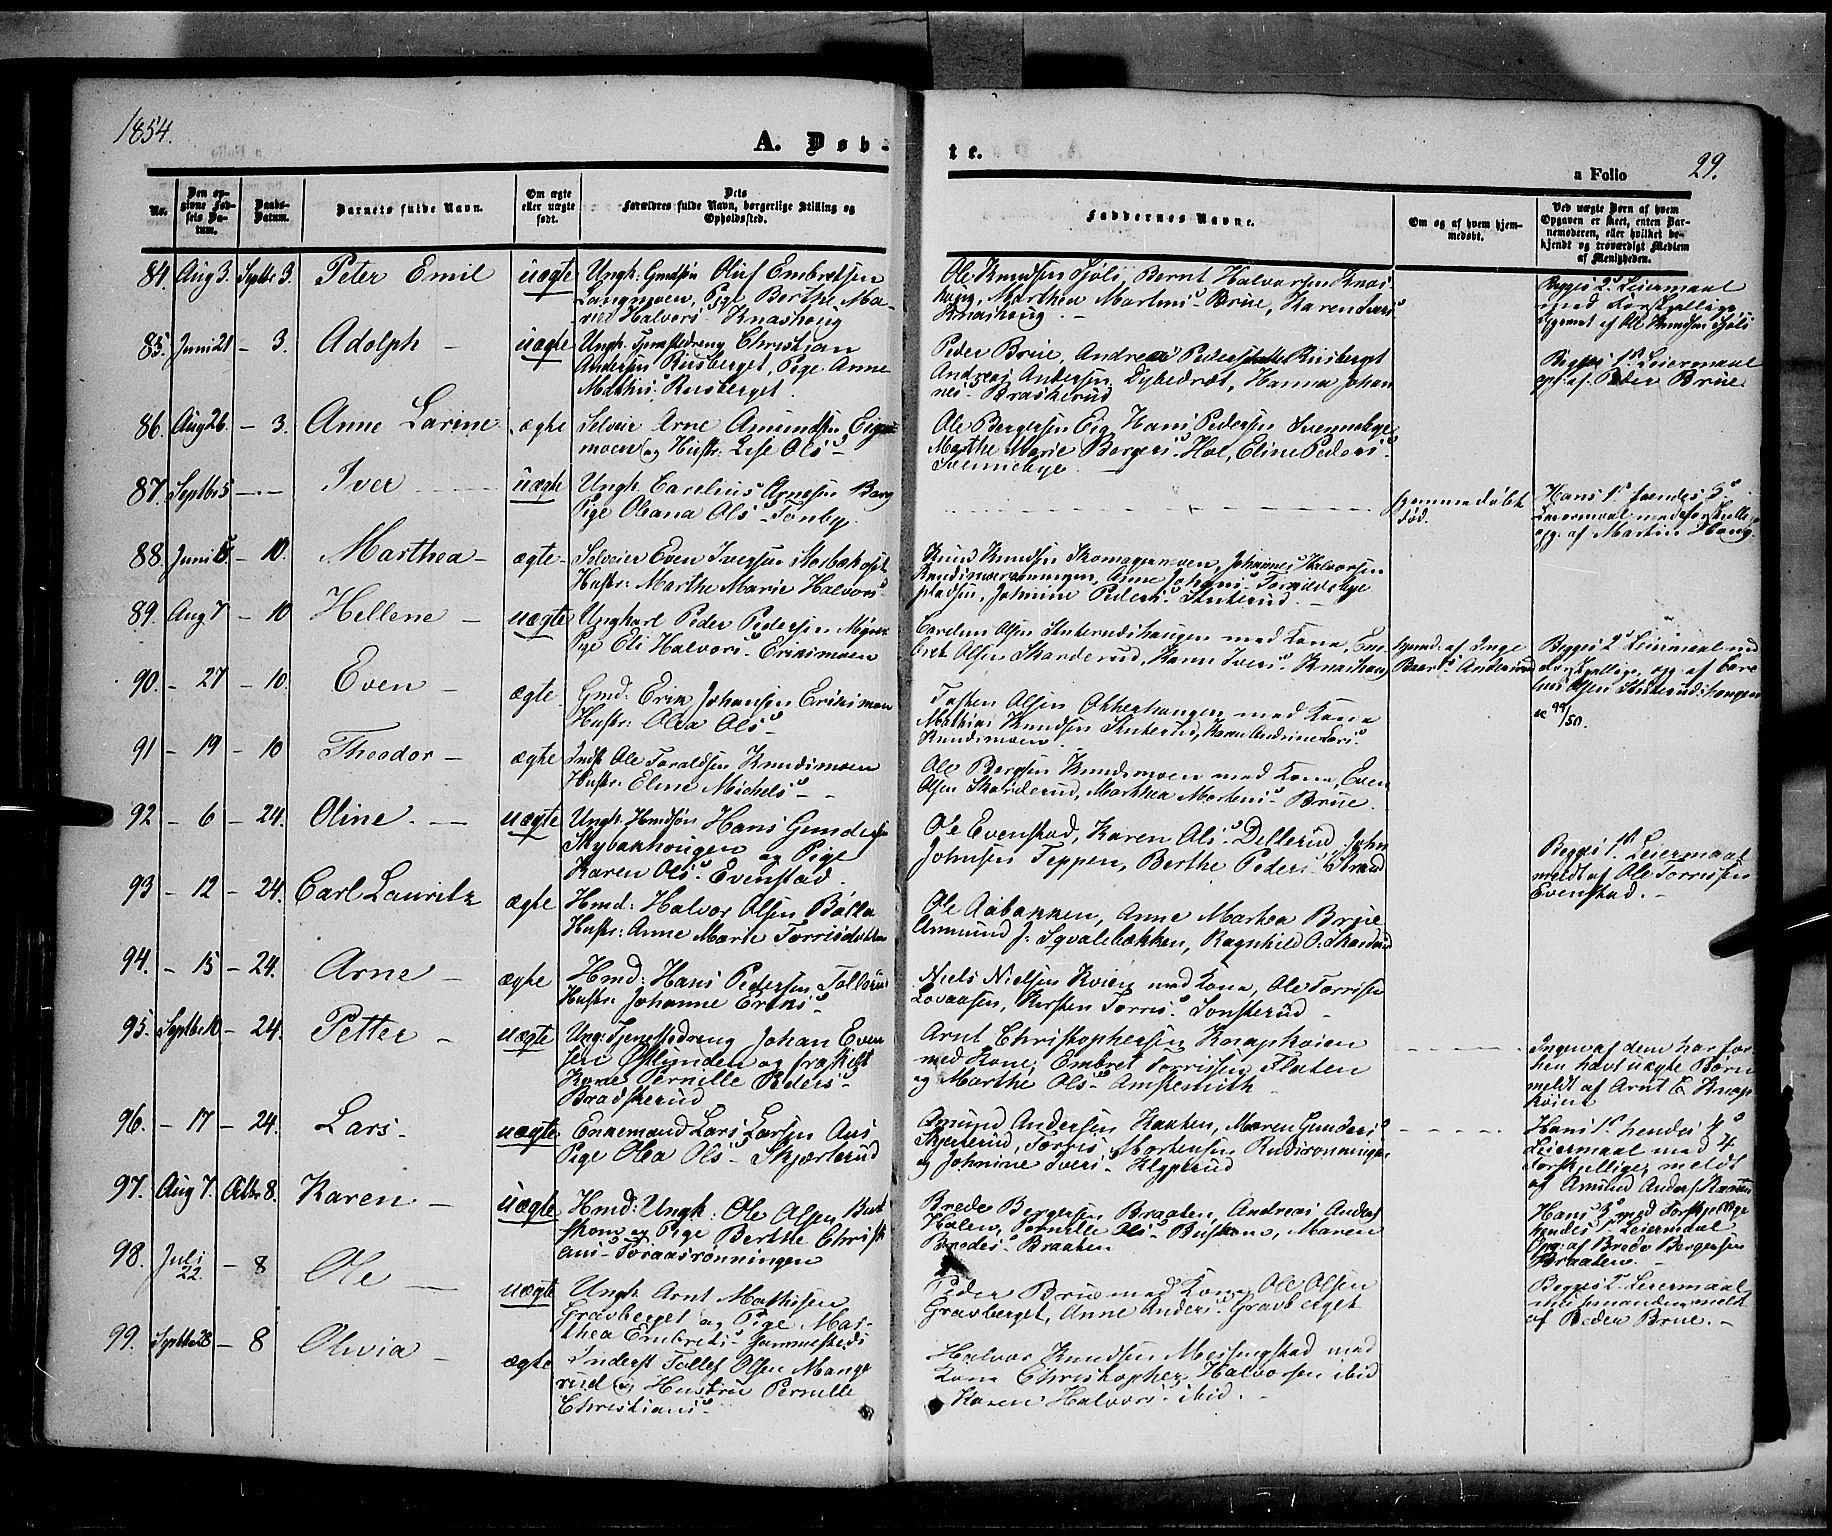 1854.
A. Døb-
te.
a Folio 29.
No.
Den an-
givne Fød-
sels Da-
tum.
Daabs-
Datum.
Barnets fulde Navn.
Om ægte
eller uægte
født.
Dets
Forældres fulde Navn, borgerlige Stilling og
Opholdssted.
Faddernes Navne.
Om og af hvem hjem-
medøbt.
Ved uægte Børn af hvem
Opgaven er skeet, enten Bar-
nemoderen, eller hvilket be-
kjendt og troværdigt Medlem
af Menigheden.
84. Aug 3. Septbr 3. Peter Emil uægte
Ungk. Gmdsøn Oluf Embretsen
Langmoen, Pige Berthe Ma-
rie Halvors. Knashoug
Ole Knudsen Kjøls, Bernt Halvorsen Knas
houg, Marthea Martins Brue, Karen
Knashoug. -
Begges 2d Leiermaal
med Forskjellige
opgivet af Ole Knudsen Kjøls
85. Juni 21 - 3. Adolph - uægte
Ungk. Tjenstedreng Christian
Andersen Risberget, Pige Anne
Mathis. Risberget.
Peder Brue, Andreas Peders Risberget
Andreas Andersen Dybedræt, Hanna Johan
nes. Braskerud
Begges 1st Leiermaal
opg. af Peder Brue.
86. Aug 26. - 3. Anne Larine ægte
Selveier Arne Amundsen Eig
moen og Hustr. Lise Ols.
Ole Bergersen Eig, Hans Pedersen Svennebye,
Marthe Marie Bergers. Hol, Eline Peders.
Svennebye
87. Septbr 5 - - - Iver uægte
Ungk. Carelius Arnesen Berg
Pige Oleana Ols. Tonby.
hjemmedøbt
død.
Hans 1st hendes 3d
Leiermaal med forskjellige
opg. af Martin Houg.
88. Juni - 10. Marthea - ægte
Selveier Even Iversen
Hustr. Marthe Marie Halvors.
Knud Knudsen Skomagermoen, Johannes Halvorsen
Anne Johans.
pladsen, Johnine Peders. Stuterud. -
89. Aug 7 - 10 Hellene - uægte
Ungkarl Peder Pedersen
Pige Eli Halvors. Eriksmoen
Carelius Olsen Stuterudshaugen med Kone, Em-
bret Olsen Skarderud, Karen Ivers. Knashoug
hjemd. af Inge
Baards. Anderud
Begges 2d Leiermaal med
Forskjellige, og af Care
lius Olsen Stuterudshaugen
90. - 27 - 10. Even - ægte
Gmd. Erik Johansen Eriksmoen
Hustr. Olea Ols.
Tosten Olsen Okkerhaugen med Kone
Mathias Knudsen Stuterud, Karen Andrine Lars.
Knudsmoen.
91 - 19 - 10 Theodor - ægte
Indst. Ole Taraldsen Knudsmoen
Hustr. Eline Michels. -
Ole Bergsen Knudsmoen med Kone, Even
Olsen Skarderud, Marthea Martins. Brue.
92 - 6 - 24. Oline. - uægte
Ungk. Hmdsøn Hans Gunder
Mybakhougen og Pige
Karen Ols. Evenstad.
Ole Evenstad, Karen Ols. Dellerud, John
Johnsen Teppen, Berthe Peders. Strand
Begges 1st Leiermaal
meldt af Ole Torrisen
Evenstad. -
93 - 12 - 24. Carl Lauritz ægte
Hmd. Halvor Olsen
Hustr. Anne Marie Torrisdatter
Ole Aabakken, Anne Marthea Brue
Amund J. Sqvalebækken, Ragnhild O. Skarderud
94. - 15 - 24. Arne - ægte
Hmd. Hans Pedersen Tollerud
Hustr. Johanne Eriks.
Niels Nielsen Kvien med Kone, Ole Torrisen
Lovaasen, Kirsten Torris. Sonsterud -
95. Septbr 10 - 24. Petter - uægte
Ung. Tjenestedreng Johan Even
sen Østlunden og fraskilt
Kone Pernille Peders.
Bradskerud
Arnt Christophersen Knaphoien
med Kone, Embret Torrisen Flaten
og Marthe Ols. Amstemith -
Ingen af dem har for-
hen havt uægte Børn
meldt af Arnt C. Knap
høien
96. - 17 - 24. Lars - uægte
Enkemand Lars Larsen Aas
Pige Olea Ols. Skjærterud
Amund Andersen Kaaten, Maren Gunders.
Skjerterud, Torris Mortensen Rudsrønningen
og Johnine Ivers. Klypperud
Hans 1st hendes 4d
Leiermaal med 4
Forskjellige, meldt
af Amund Anders. Kaaten
97. Aug 7. Octbr 8. Karen - uægte
Hmd. Ungk. Ole Olsen Busk
skom og Pige Berthe Christi
ans. Toraasrønningen
Brede Bergersen Braaten, Andreas Anders
Holen, Pernille Ols. Buskom, Maren
Bredes. Braaten
Hans 3d med Forskjellige
hendes 1st Leiermaal
Opg. af Brede Bergersen
Braaten. -
98. Juli 22. - 8 Ole - uægte
Ungk. Arnt Mathisen
Gravberget og Pige Mar-
thea Embrets. Gammelsted
Peder Brue med Kone, Ole Olsen
Gravberget, Anne Anders. Gravberget
Begges 1st Leiermaal
med hinanden, meldt
af Peder Brue. -
99. Septbr 28 - 8 Olivia - ægte
Inderst Tollef Olsen Mange
rud og Hustrue Pernille
Christians.
Halvor Knudsen Messingstad med
Kone, Christopher Halvorsen ibid
Karen Halvors. ibid. -